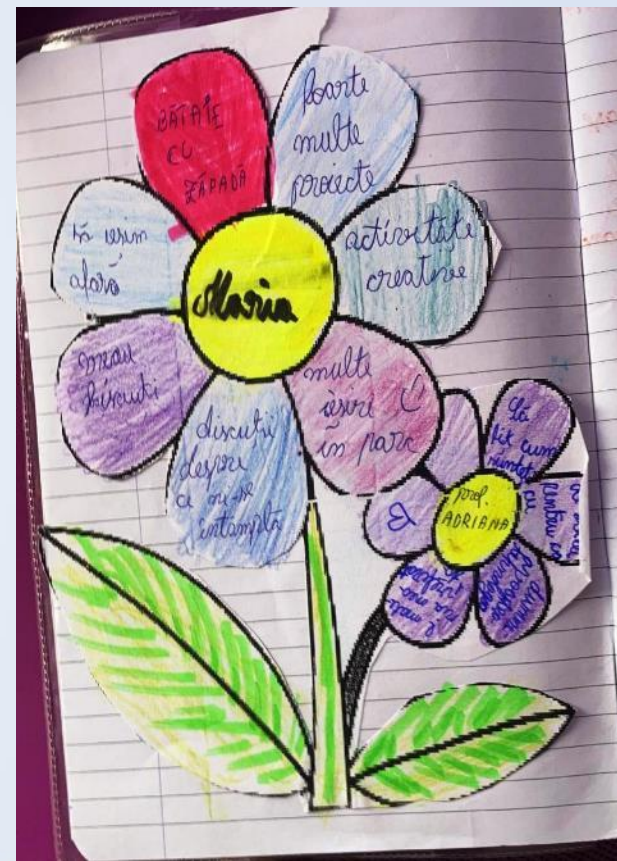 BĂTAIE
CU
ZĂPADĂ
foarte
multe
proiecte
activitate
creative
multe
iesiri
în parc
discuții
despre
ce ni-se
întamplă
biscuiti
să iesim
afară
Maria
prof.
ADRIANA
Să
fit cum
cu
pentru